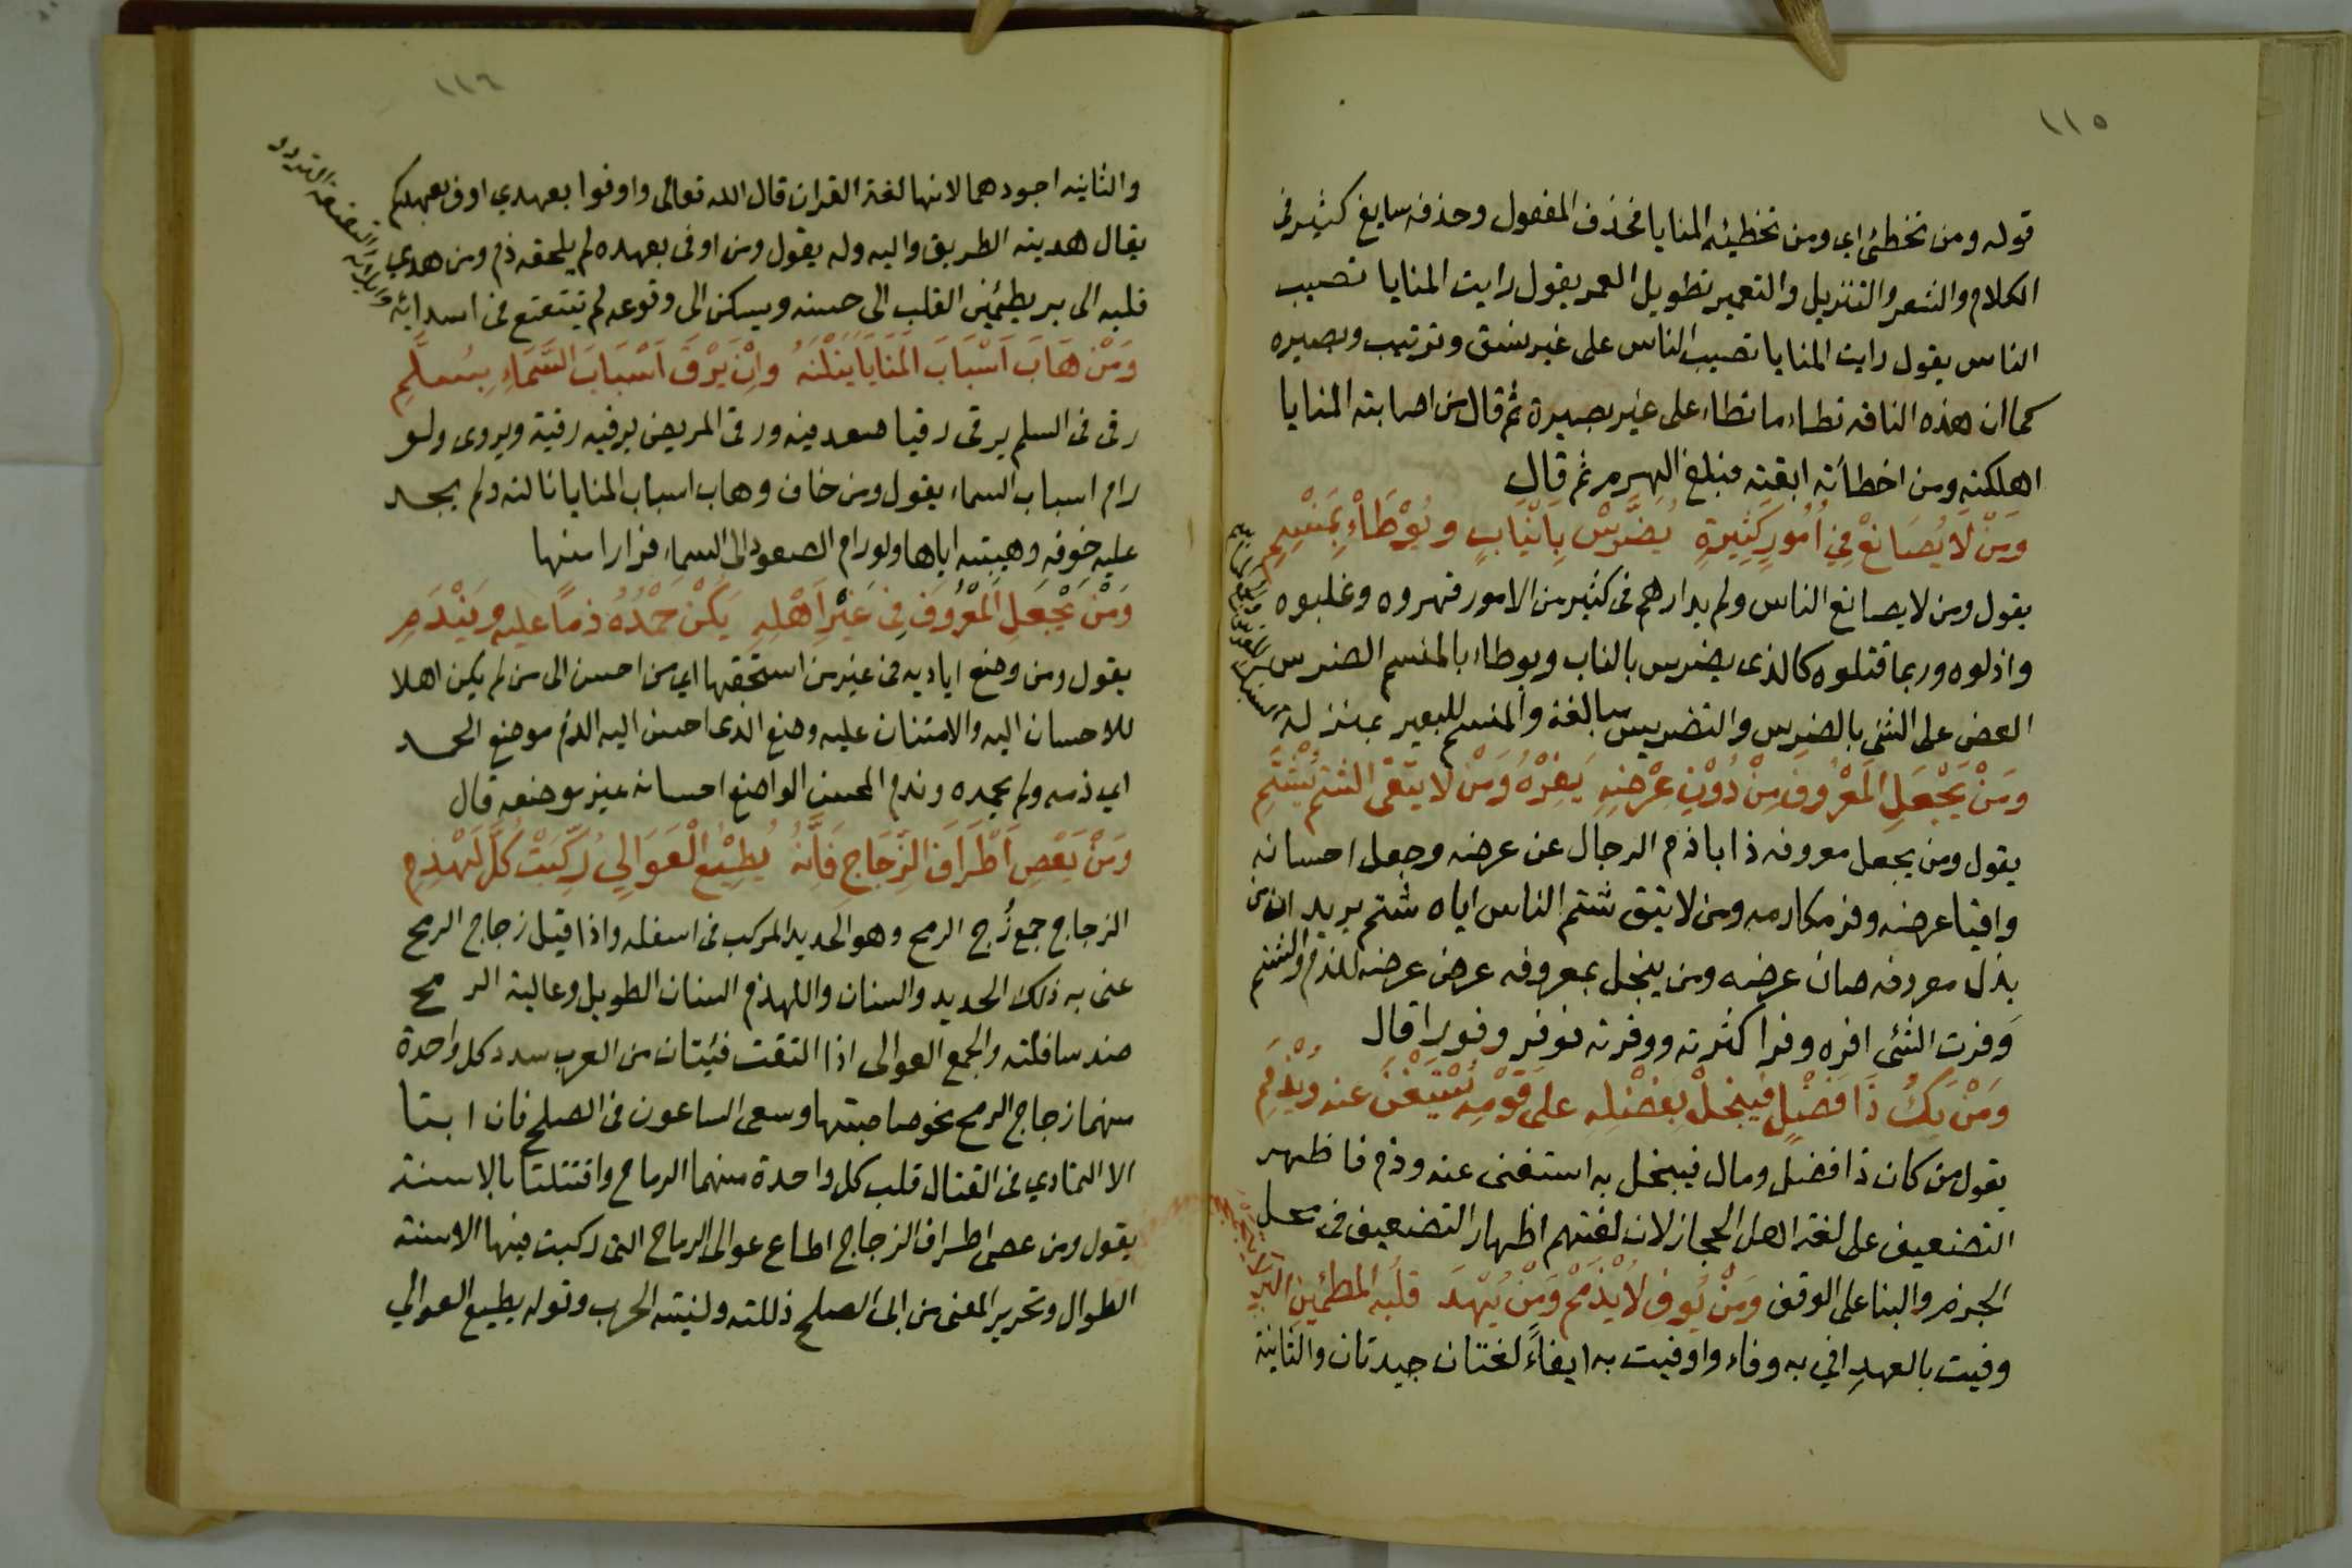 ١١٥
قوله ومن تخطئ اي ومن تخطيه المنايا فحذف المفعول وحذفه سايغ كثير في
الكلام والشعر والتنزيل والتعمير تطويل العمر يقول رايت المنايا تصيب
الناس يقول رايت المنايا تصيب الناس على غير نسق وترتيب وبصيره
كما ان هذه الناقه تطاء ما تطاء على غير بصيرة ثم قال من اصابته المنايا
اهلكته ومن اخطأته ابقته فبلغ الهرم ثم قال
وَمَنْ لَا يُصَانِعْ فِي اُمُورٍ كَثِيرَةٍ يُضَرَّسْ بِاَنْيَابٍ وَيُوْطَاءْ بِمَنْسِمِ
يقول ومن لا يصانع الناس ولم يدارهم في كثير من الامور قهروه وغلبوه
واذلوه وربما قتلوه كالذى يضرس بالناب ويوطاء بالمنسم الضرس
العض على الشئ بالضرس والتضريس مبالغة والمنسم للبعير بمنزلة
وَمَنْ يَجْعَلِ الْمَعْرُوفَ مِنْ دُوْنِ عِرْضِهِ يَفِرْهُ وَمَنْ لَا يَتَّقِى الشتم يُشْتَمِ
يقول ومن يجعل معروفه ذابا ذم الرجال عن عرضه وجعل احسانه
واقيا عرضه وفر مكارمه ومن لا يتق شتم الناس اياه شتم يريد ان من
بذل معروفه صان عرضه ومن يبخل بمعروفه عرض عرضه للذم والشتم
وفرت الشئ افره وفرا كثرته ووفرته فوفر وفورا قال
وَمَنْ يَكُ ذَا فَضْلٍ فَيَبْخَلْ بِفَضْلِهِ على قَوْمِهِ يُسْتَغْنَ عنه وَيُذْمَمِ
يقول من كان ذا فضل ومال فيبخل به استغنى عنه وذم فاظهر
التضعيف على لغة اهل الحجاز لان لغتهم اظهار التضعيف في محل
الجزم والبنا على الوقف وَمَنْ يُوفِ لَا يُذْمَمْ وَمَنْ يُهْدَ قلبُه المطمئن البر لا يتجمجم
وفيت بالعهد افي به وفاء واوفيت به ايفاءً لغتان جيدتان والثانية
١١٦
والثانيه اجودهما لانها لغة القران قال الله تعالى واوفوا بعهدي اوف بعهدكم
يقال هديته الطريق واليه وله يقول ومن اوفى بعهده لم يلحقه ذم ومن هدي
قلبه الى بر يطمئن القلب الى حسنه ويسكن الى وقوعه لم يتتعتع في اسدائه
وَمَنْ هَابَ اَسْبَابَ الْمَنَايَا يَنَلْنَهُ وَاِنْ يَرْقَ اَسْبَابَ السَّمَاءِ بِسُلَّمِ
رقى في السلم يرقى رقيا صعد فيه ورقى المريض يرقيه رقية ويروى ولو
رام اسباب السماء يقول ومن خاف وهاب اسباب المنايا نالته ولم يجد
عليه خوفه وهيبته اياها ولو رام الصعود الى السماء فرارا منها
وَمَنْ يَجْعَلِ الْمَعْرُوفَ فِي غَيْرِ اَهْلِهِ يَكُنْ حَمْدُهُ ذمًا عليه وَيَنْدَمِ
يقول ومن وضع اياديه في غير من استحقها اي من احسن الى من لم يكن اهلا
للاحسان اليه والامتنان عليه وضع الذى احسن اليه الذم موضع الحمد
اي ذمه ولم يحمده وندم المحسن الواضع احسانه غير موضعه قال
وَمَنْ يَعْصِ اَطْرَافَ الزِّجَاجِ فَاِنَّهُ يُطِيْعُ الْعَوَالِي رُكِّبَتْ كُلَّ لَهْذَمِ
الزجاج جمع زُج الرمح وهو الحديد المركب في اسفله واذا قيل زجاج الرمح
عنى به ذلك الحديد والسنان واللهذم السنان الطويل وعالية الرمح
ضد سافلته والجمع العوالى اذا التقت فئتان من العرب سدد كل واحدة
منهما زجاج الرمح نحو صاحبتها وسعى الساعون في الصلح فان ابتا
الا التمادي في القتال قلب كل واحدة منهما الرماح واقتتلتا بالاسنة
يقول ومن عصى اطراف الزجاج اطاع عوالى الرماح التى ركبت فيها الاسنة
الطوال وتحرير المعنى من ابى الصلح ذللته ولينته الحرب وقوله يطيع العوالي